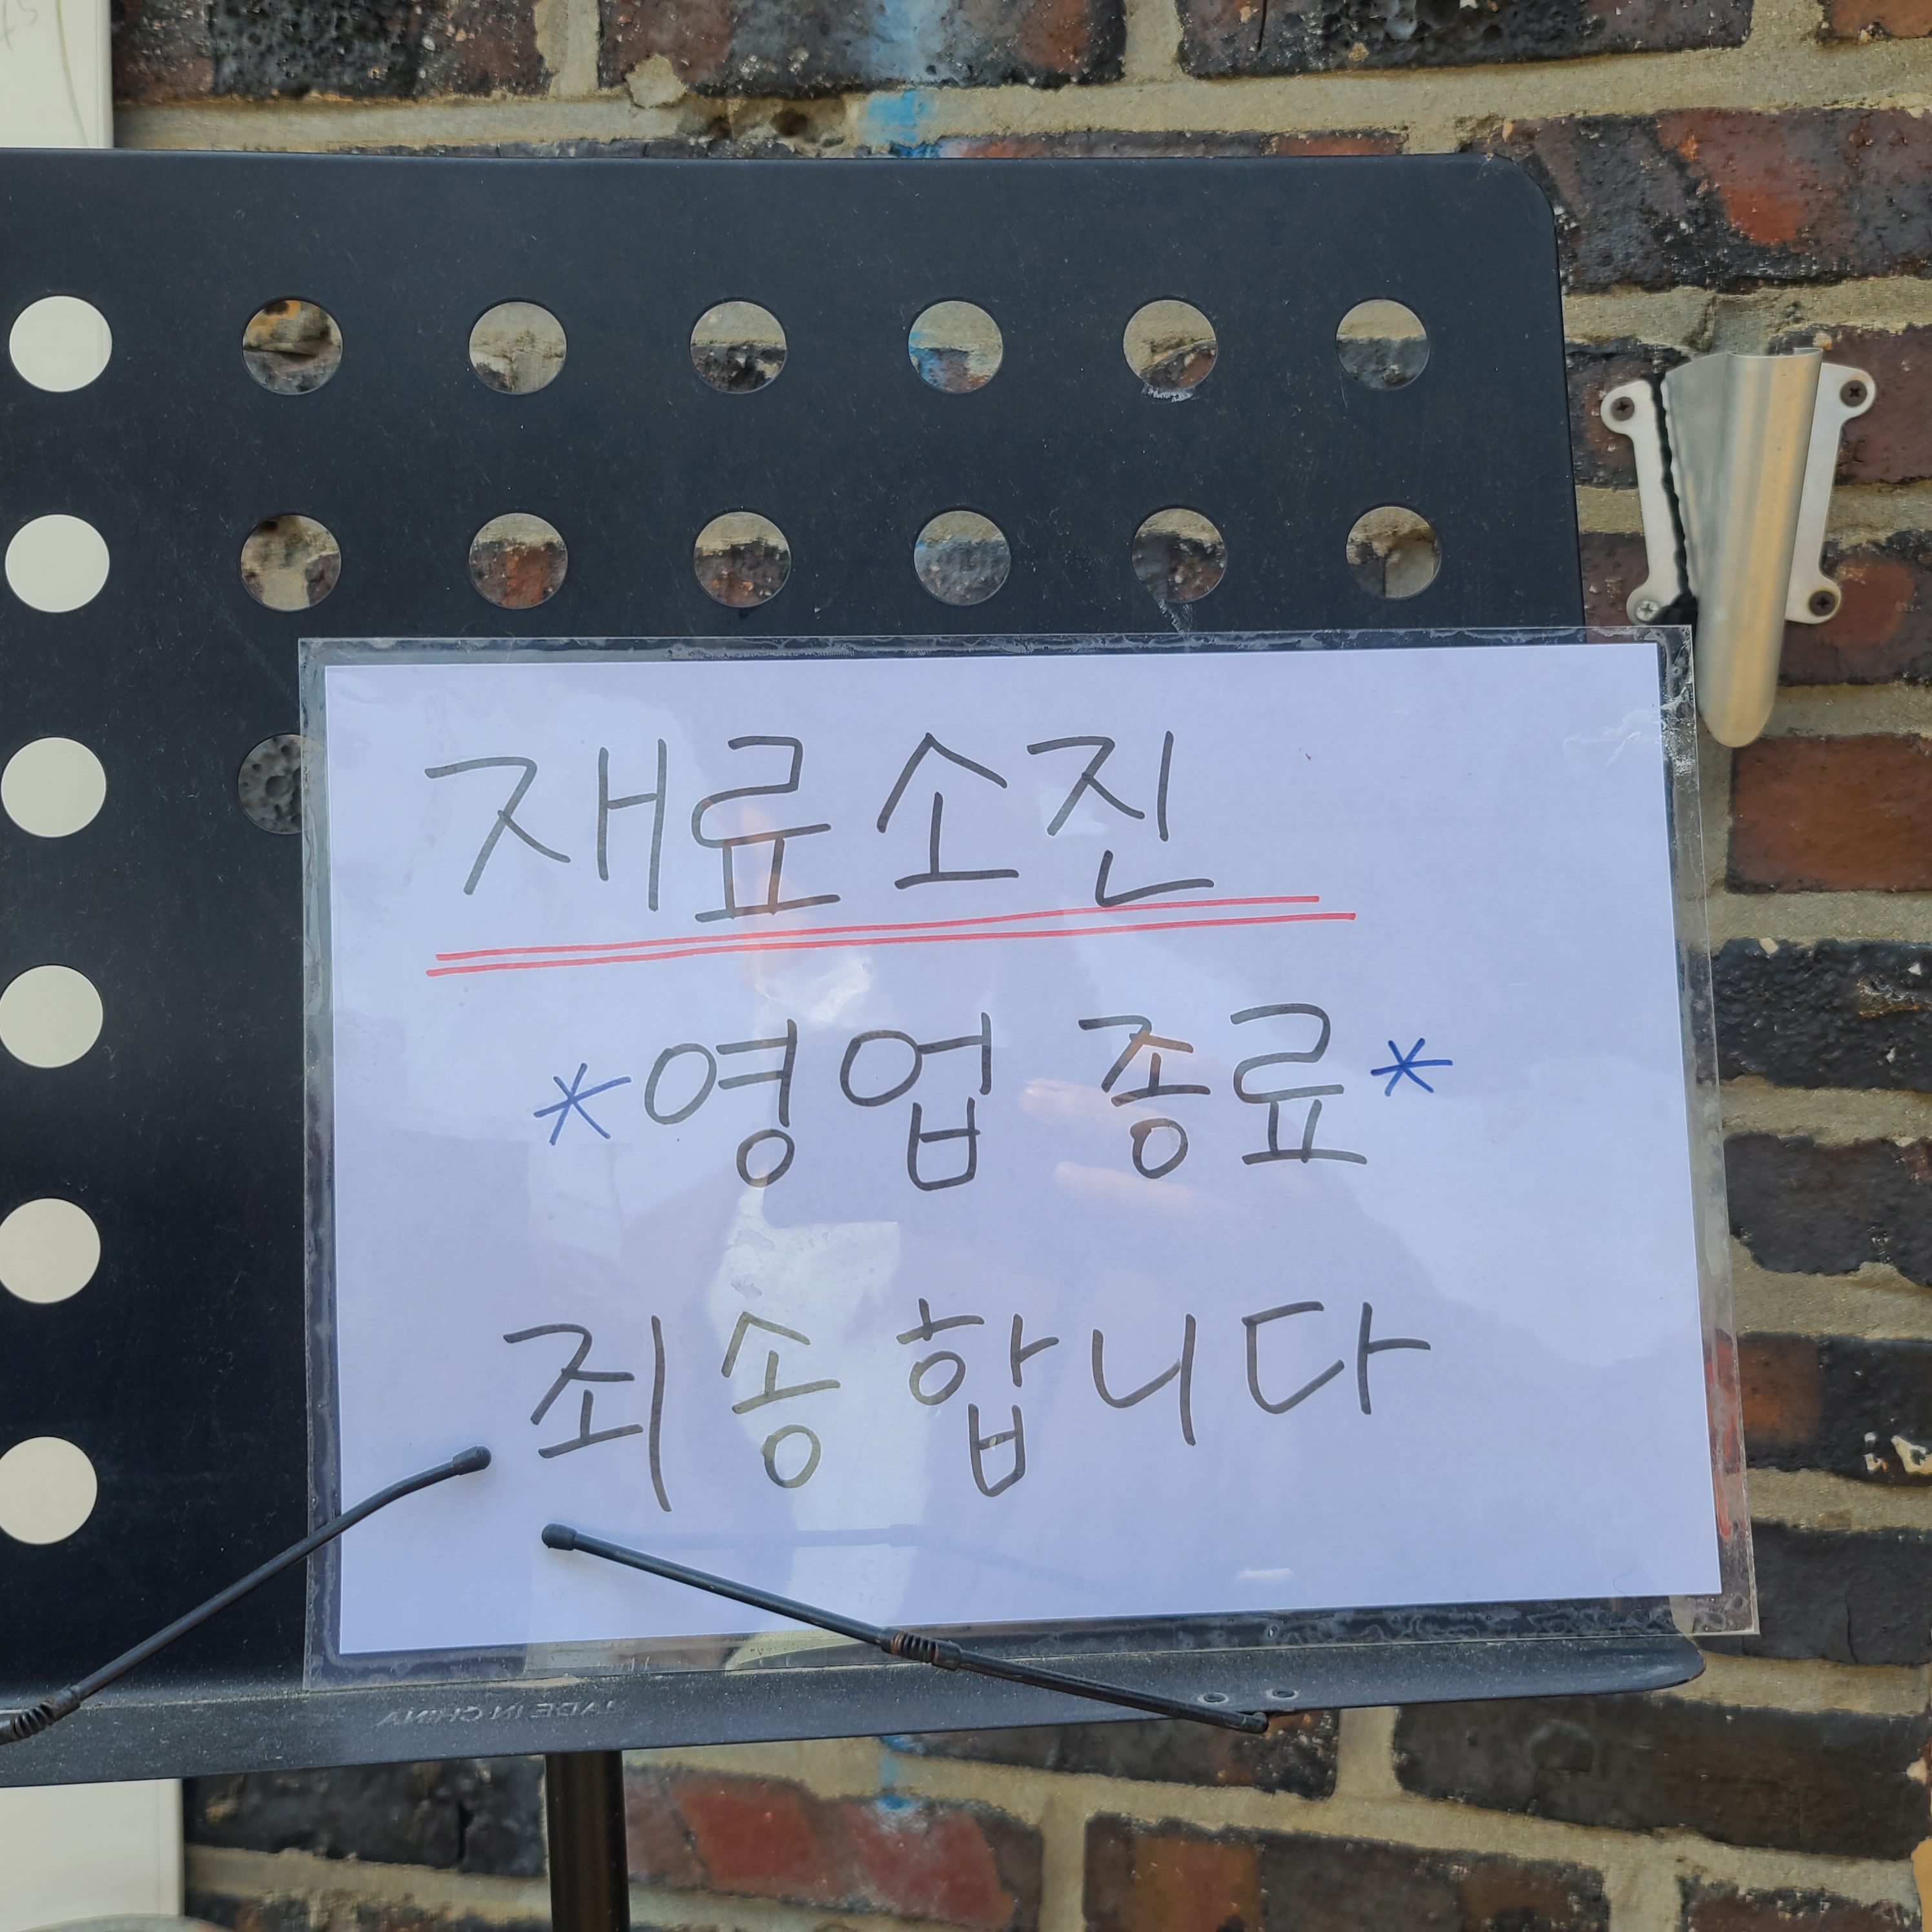 재료소진
*영업 종료*
죄송합니다
MADE IN CHINA